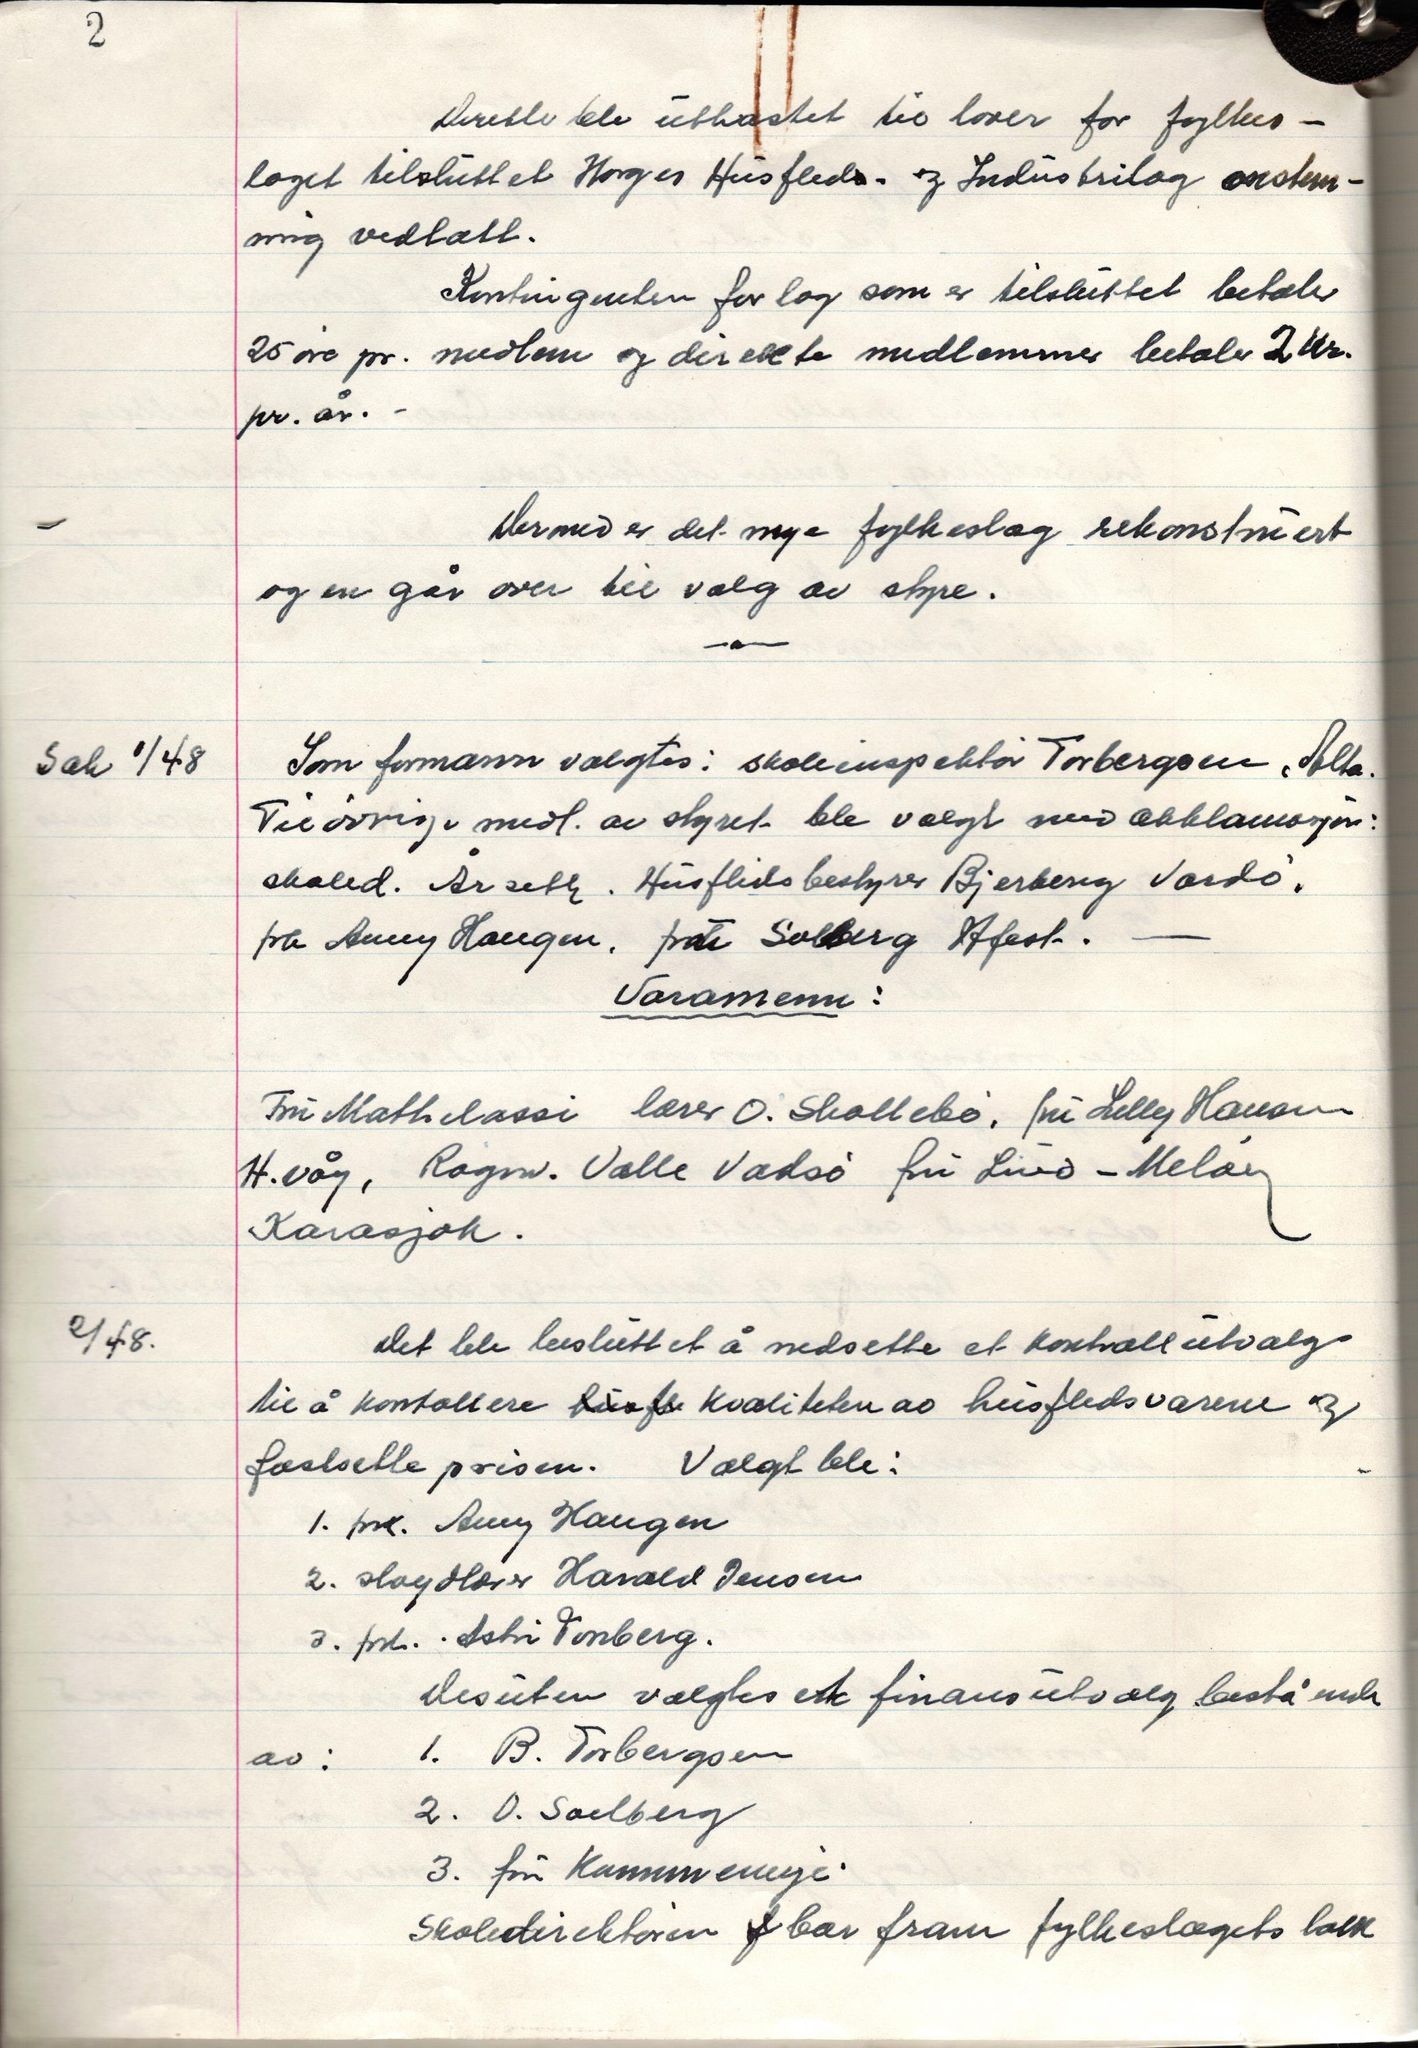 2
Dereble ble utkastet til lover for fylkes-
laget tilsluttet Norges Husflids- og Industrilag enstem-
mig vedtatt.
Kontingenten for lag som er tilsluttet betaler
25 øre pr. medlem og direkte medlemmer betaler 2 kr.
pr. år. -
Dermed er det nye fylkeslag rekonstruert
og en går over til valg av styre.
Sak 1/48 Som formann valgtes: skoleinspektør Torbergsen, Alta.
Til øvrige medl. av styret ble valgt med akklamasjon:
skoled. Årseth. Husflidsbestyrer Bjerberg Vardø,
frk Anny Haugen, Solberg Hfest. —
Varamenn:
Fru Mathelassi lærer O. Skollebø, fru Lilly Hansen
H.våg, Ragnv. Valle Vadsø fru Lind - Meløy
Karasjok.
2/48. Det ble besluttet å nedsette et kontrollutvalg
til å kontollere kvaliteten av husflidsvarene og
fastsette prisen. Valgt ble:
1. frk. Anny Haugen
2. sløydlærer Harald Jensen
3. frk. Astri Tonberg.
Desuten valgtes et finansutvalg bestående
av: 1. B. Torbergsen
2. O. Soelberg
3. fru
Skoledirektøren bar fram fylkeslagets takk